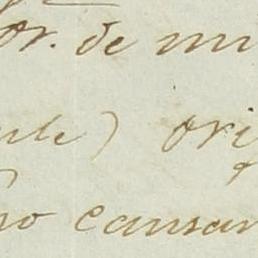 or. de mi
nte) ori
no causar